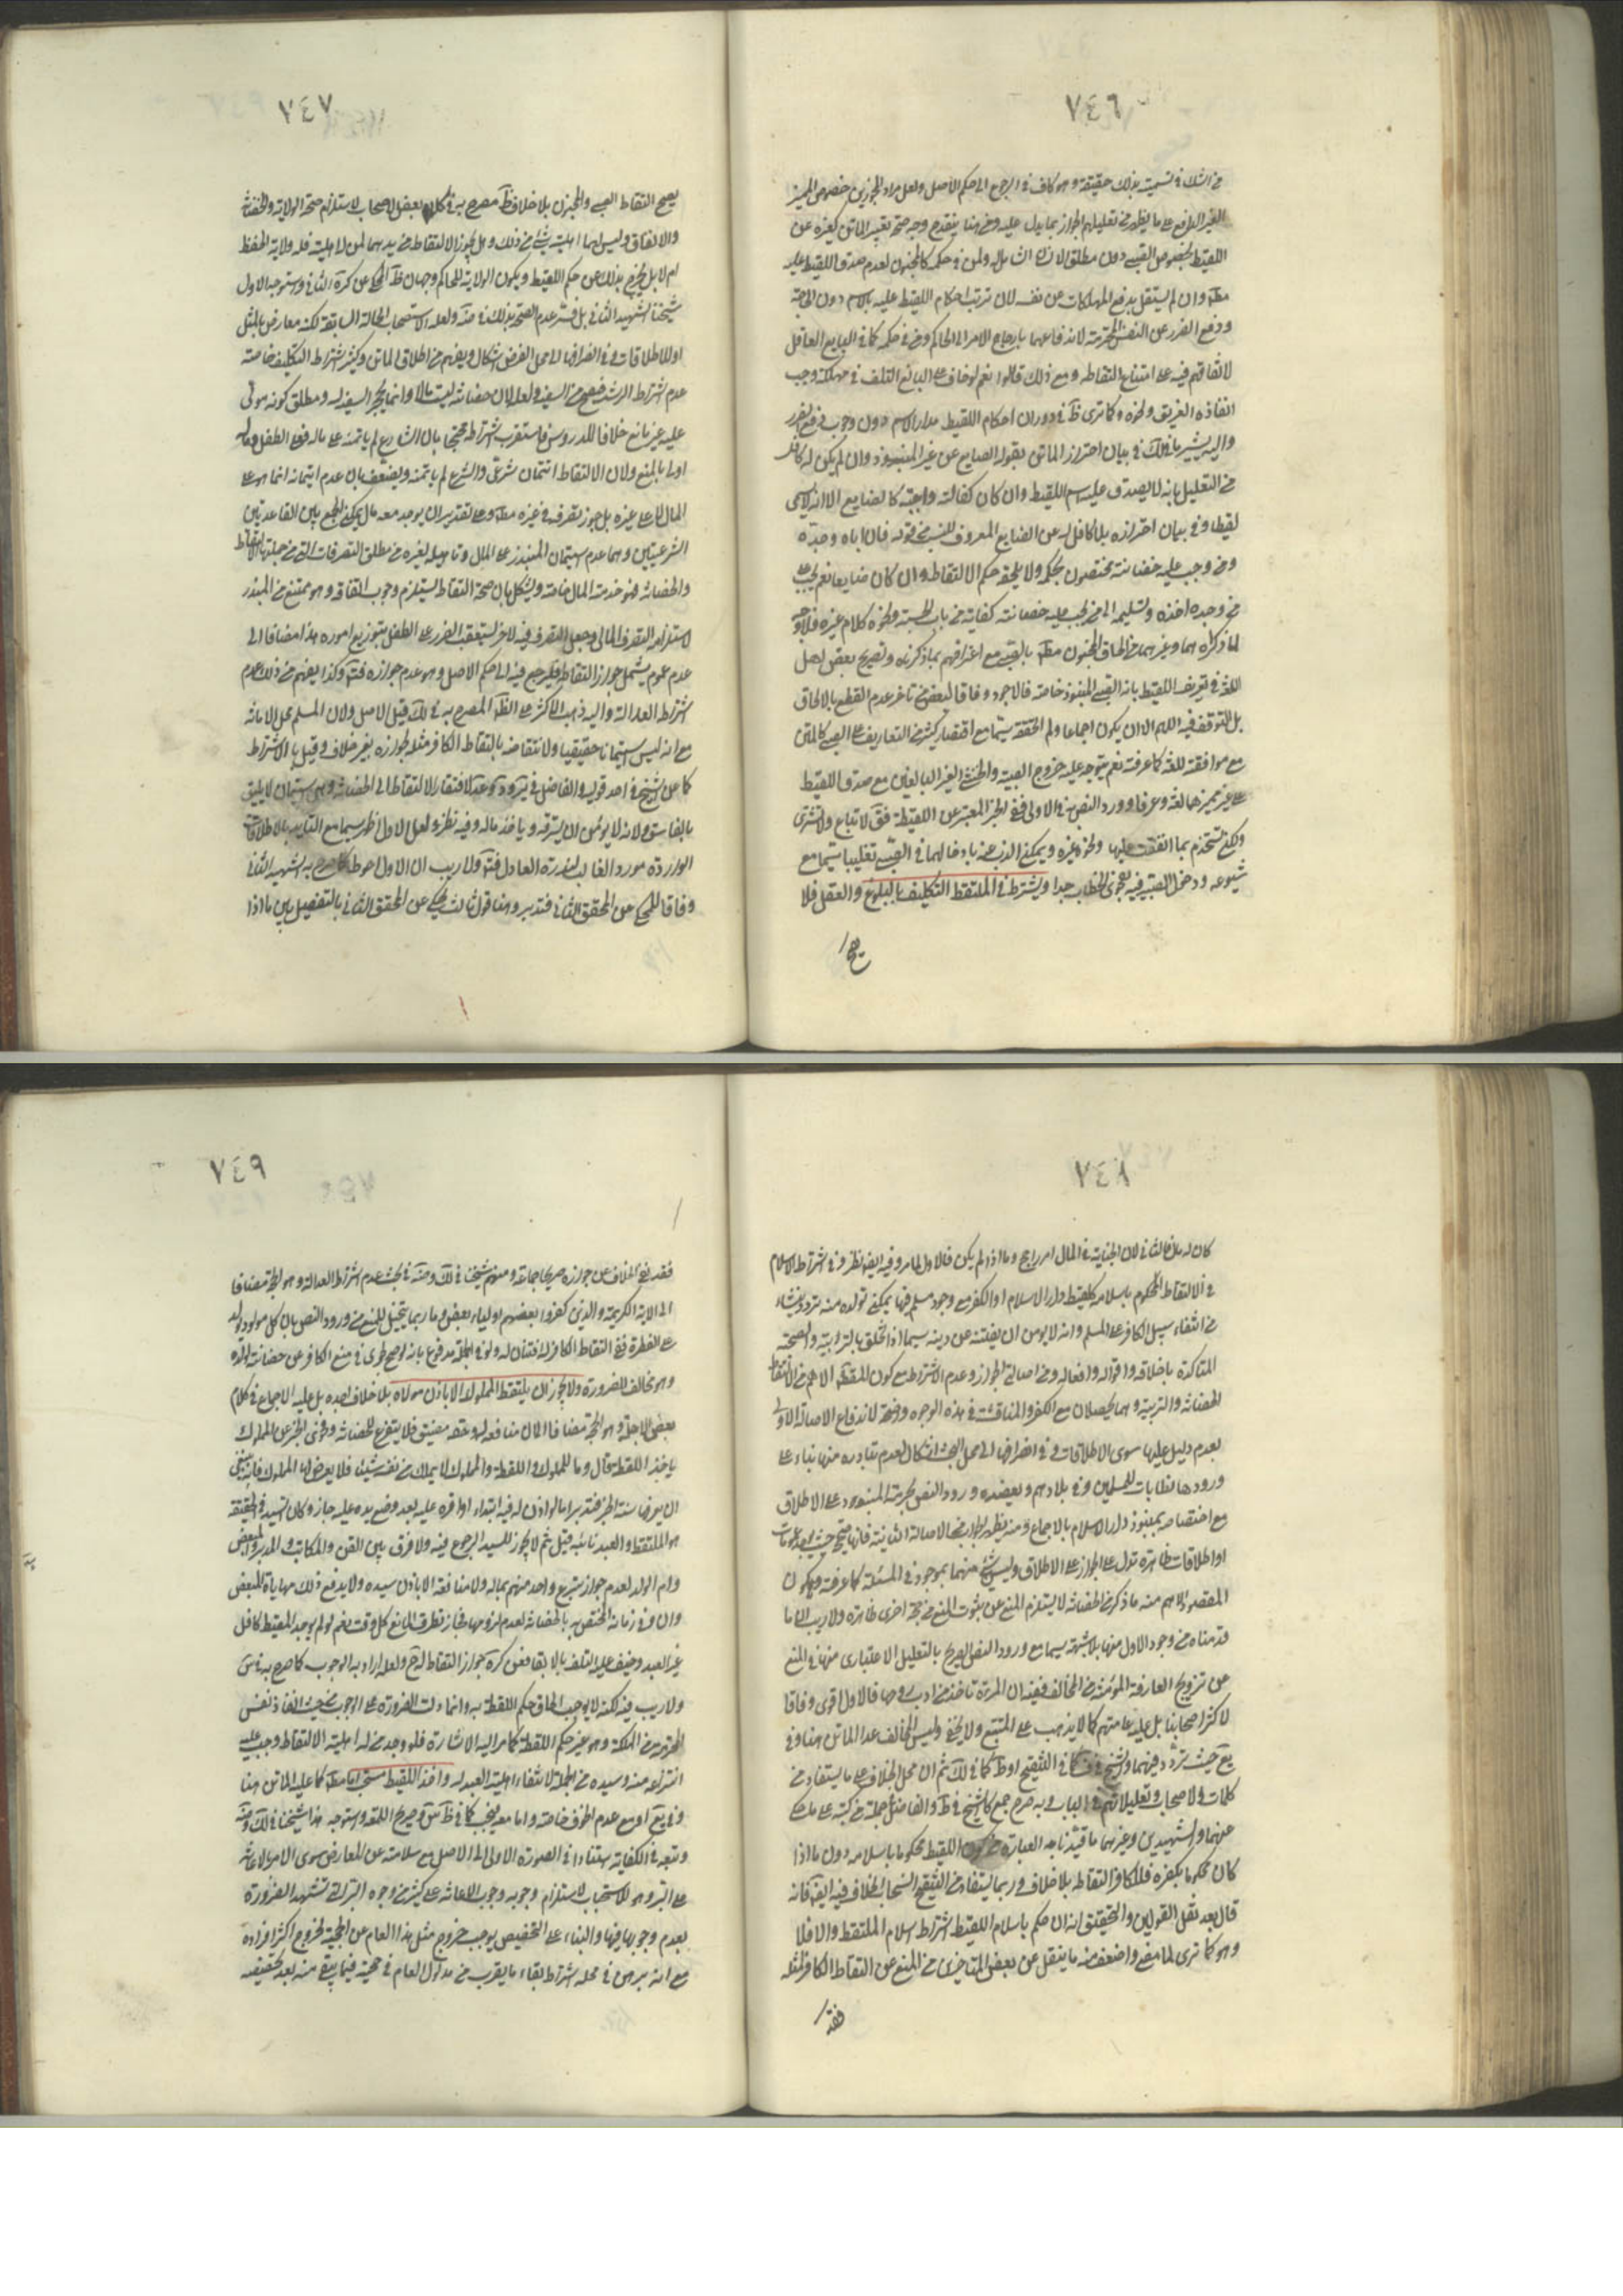 ٧٤٦
من الشك في تسميته بذلك حقيقة وهو كاف في الرجوع الى حكم الاصل ولعل مراد المجوزين خصوص المميز
الغير المراهق على ما يظهر من تعليلهم الجواز بما يدل عليه ومن هنا ينقدح وجه صحة تعبير الماتن كغيره عن
اللقيط بخصوص الصبي دون مطلق الانسان الشامل له ولمن في حكمه كالمجنون لعدم صدق اللقيط عليه
مطلقا وان لم يستقل بدفع المهلكات عن نفسه لان ترتب احكام اللقيط عليه بالاسم دون الحاجة
ودفع الضرر عن النفس المحترمة لاندفاعهما بارجاع الامر الى الحاكم ومن في حكمه كما في البالغ العاقل
لاتفاقهم فيه على امتناع التقاطه ومع ذلك قالوا نعم لو خاف على البالغ التلف في مهلكة وجب
انقاذه الغريق ونحوه وكما ترى ظ في دوران احكام اللقيط مدار الاسم دون وجوب دفع الضرر
واليه يشير ما في لك في بيان احتراز الماتن بقوله الضايع عن غير المنبوذ وان لم يكن له كافل
من التعليل بانه لا يصدق عليه اسم اللقيط وان كان كفالته واجبة كالضايع الا انه لا يسمى
لقيطا وفي بيان احترازه بلا كافل له عن الضايع المعروف النسب من قوله فان اباه وجده
ومن وجب عليه حضانته مختصون بحكمه ولا يلحقه حكم الالتقاط وان كان ضايعا نعم يجب على
من وجده اخذه وتسليمه الى من يجب عليه حضانته كفاية من باب الحسبة ونحوه كلام غيره فلا وجه
لما ذكراه هما وغيرهما من الحاق المجنون مطلقا بالصبي مع اعترافهم بما ذكرناه وتصريح بعض اهل
اللغة في تعريف اللقيط بانه الصبي المنبوذ خاصة فالاجود وفاقا لبعض من تاخر عدم القطع بالالحاق
بل التوقف فيه اللهم الا ان يكون اجماعا ولم اتحققه سيما مع اقتصار كثير من التعاريف على الصبي كالمتن
مع موافقته للغة كما عرفته نعم يتوجه عليه خروج الصبية والخنثى الغير البالغين مع صدق اللقيط
على غير مميزهما لغة وعرفا وورود النص في الاولى ففي الخبر المعتبر عن اللقيطة فق لا تباع ولا تشترى
ولكن تستخدم بما انفقت عليها ونحوه غيره ويمكن الذب عنه بادخالهما في الصبي تغليبا سيما مع
شيوعه ودخول الصبية فيه بفحوى الخطاب جدا ويشترط في الملتقط التكليف بالبلوغ والعقل فلا
يصح
٧٤٧
يصح التقاط الصبي والمجنون بلا خلاف ظ مصرح به في كلام بعض الاصحاب لاستلزام صحته الولاية والحضانة
والانفاق وليس لهما اهلية شيء من ذلك وهل يجوز الالتقاط من يدهما لمن له اهليته فله ولاية الحفظ
ام لا بل يخرج بذلك عن حكم اللقيط ويكون الولاية للحاكم وجهان ظ المحكي عن كرة الثاني واستوجه الاول
شيخنا الشهيد الثاني بل فسر عدم الصحة بذلك في ضة ولعله لاستصحاب الحالة السابقة لكنه معارض بالمثل
او للاطلاقات وفي انصرافها الى محل الفرض اشكال ويفهم من اطلاق الماتن وكثير اشتراط التكليف خاصة
عدم اشتراط الرشد فيصح من السفيه ولعله لان حضانته ليست مالا وانما يحجر السفيه له ومطلق كونه مولى
عليه غير مانع خلافا للدروس فاستقرب اشتراطه محتجا بان الشارع لم ياتمنه على ماله فعلى الطفل وماله
اولى بالمنع ولان الالتقاط ائتمان شرعي والشرع لم ياتمنه ويضعف بان عدم ائتمانه انما هو على
المال لا على غيره بل جوز تصرفه في غيره مطلقا وعلى تقدير ان يوجد معه مال يمكن الجمع بين القاعدتين
الشرعيتين وهما عدم استيمان المبذر على المال وتاهيله لغيره من مطلق التصرفات التي من جملتها الالتقاط
والحضانة فيؤخذ منه المال خاصة ويشكل بان صحة التقاطه يستلزم وجوب انفاقه وهو ممتنع من المبذر
لاستلزامه التصرف المالي وجعل التصرف فيه لاخر يستعقب الضرر على الطفل بتوزيع اموره هذا مضافا الى
عدم عموم يشمل جواز التقاطه فليرجع فيه الى حكم الاصل وهو عدم جوازه فتة وكذا يفهم من ذلك عدم
اشتراط العدالة واليه ذهب الاكثر على الظ المصرح به في لك قيل للاصل ولان المسلم محل الامانة
مع انه ليس استيمانا حقيقيا ولانتقاضه بالتقاط الكافر مثله لجوازه بغير خلاف وقيل بالاشتراط
كما عن الشيخ في احد قوليه والفاضل في ير ود وعد لافتقار الالتقاط الى الحضانة وهي استيمان لا يليق
بالفاسق ولانه لا يؤمن ان يسترقه وياخذ ماله وفيه نظر ولعل الاول اظهر سيما مع التاييد بالاطلاقات
الواردة مورد الغالب لندرة العادل فتة ولا ريب ان الاول احوط كما صرح به الشهيد الثاني
وفاقا للمحكي عن المحقق الثاني فتدبر وهنا قول ثالث محكي عن المحقق الثاني بالتفصيل بين ما اذا
٧٤٨
كان له مال فالثاني لان الخيانة في المال امر راجح وما اذا لم يكن فالاول لما مر وفيه ايضا نظر وفي اشتراط الاسلام
في الالتقاط المحكوم باسلامه كلقيط دار الاسلام او الكفر مع وجود مسلم فيها يمكن تولده منه تردد ينشاء
من انتفاء سبيل الكافر على المسلم وانه لا يؤمن ان يفتنه عن دينه سيما اذا تخلق بالتربية والصحبة
المتاكدة باخلاقه واقواله وافعاله ومن اصالة الجواز وعدم الاشتراط مع كون المقصد الاهم من الالتقاط
الحضانة والتربية وهما يحصلان مع الكفر والمناقشة في هذه الوجوه واضحة لاندفاع الاصالة الاولى
بعدم دليل عليها سوى الاطلاقات وفي انصرافها الى محل البحث اشكال لعدم تبادره منها بناء على
ورودها خطابات للمسلمين وفي بلادهم ويعضده ورود النص بحرية المنبوذ على الاطلاق
مع اختصاصه بمنبوذ دار الاسلام بالاجماع ومنه يظهر الجواب عن الاصالة الثانية فانها تتجه حيث يوجد عمومات
او اطلاقات ظاهرة تدل على الجواز على الاطلاق وليس شيء منهما بموجود في المسئلة كما عرفته وكون
المقصود الاهم منه ما ذكر من الحضانة لا يستلزم المنع عن ثبوت المنع من جهة اخرى ظاهرة ولا ريب انا ما
قدمناه من وجود الاول منها بلا شبهة سيما مع ورود النص الصريح بالتعليل الاعتباري منها في المنع
عن تزويج العارفة المؤمنة من المخالف ففيه ان المرئة تاخذ من ادب زوجها فالاول اقوى وفاقا
لاكثر اصحابنا بل عليه عامتهم كما لا يذهب على المتتبع ولا يخفى وليس المخالف عدا الماتن هنا وفي
يع حيث تردد فيهما والشيخ في ف كما في التنقيح او ط كما في لك ثم ان محل الخلاف على ما يستفاد من
كلمات الاصحاب وتعليلاتهم في الباب وبه صرح جمع كالشيخ في ط والفاضل جملة من كتبه على ما حكي
عنهما والشهيدين وغيرهما ما قيدنا به العبارة من كون اللقيط محكوما باسلامه دون ما اذا
كان محكوما بكفره فللكافر التقاطه بلا خلاف وربما يستفاد من التنقيح انسحاب الخلاف فيه ايضا فانه
قال بعد نقل القولين والتحقيق انه ان حكم باسلام اللقيط اشترط اسلام الملتقط والا فلا
وهو كما ترى لما مضى واضعف منه ما ينقل عن بعض المتاخرين من المنع عن التقاط الكافر لمثله
فقد
٧٤٩
فقد نفى الخلاف عن جوازه صريحا جماعة ومنهم شيخنا في لك وضة في بحث عدم اشتراط العدالة وهو الحجة مضافا
الى الاية الكريمة والذين كفروا بعضهم اولياء بعض وما ربما يتخيل للمنع من ورود النص بان كل مولود يولد
على الفطرة ففي التقاط الكافر له افتتان له ولو في الجملة مدفوع بانه لو صح لجرى في منع الكافر عن حضانة ولده
وهو مخالف للضرورة ولا يجوز ان يلتقط المملوك الا باذن مولاه بلا خلاف اجده بل عليه الاجماع في كلام
بعض الاجلة وهو الحجة مضافا الى ان منافعه لسيده وحقه مضيق فلا يتفرغ للحضانة وفحوى الخبر عن المملوك
ياخذ اللقطة فقال وما للمملوك واللقطة والمملوك لا يملك من نفسه شيئا فلا يعرض لها المملوك فانه ينبغي
ان يعرفها سنة الخبر فتدبر اما لو اذن له فيه ابتداء او اقره عليه بعد وضع يده عليه جاز وكان السيد في الحقيقة
هو الملتقط والعبد نائبه قيل ثم لا يجوز للسيد الرجوع فيه ولا فرق بين القن والمكاتب والمدبر والمبعض
وام الولد لعدم جواز تبرع واحد منهم بماله ولا منافعه الا باذن سيده ولا يدفع ذلك مهاياة المبعض
وان وفى زمانه المختص به بالحضانة لعدم لزومها فجاز تطرق المانع كل وقت نعم لو لم يوجد للقيط كافل
غير العبد وخيف عليه التلف بالابقاء فعن كرة جواز التقاطه له ح ولعله اراد به الوجوب كما صرح به في س
ولا ريب فيه لكنه لا يوجب الحاق حكم اللقطة به وانما دلت الضرورة على الوجوب من حيث انقاذ نفس
المحترمة من الهلكة وهو غير حكم اللقطة كما مر اليه الاشارة فلو وجد من له اهلية الالتقاط وجب عليه
انتزاعه منه وسيده من الجملة لانتفاء اهلية العبد له واخذ اللقيط مستحب مطلقا كما عليه الماتن هنا
وفي يع او مع عدم الخوف خاصة واما معه فيجب كما في ظ س وصريح اللمعة واستوجه هذا شيخنا في لك وضة
وتبعه في الكفاية استنادا في الصورة الاولى الى الاصل مع سلامته عن المعارض سوى الامر بالاعانة
على البر وهو للاستحباب لاستلزام وجوبه وجوب الاعانة على كثير من وجوه البر التي تشهد الضرورة
بعدم وجوبها فيها والبناء على التخصيص يوجب خروج مثل هذا العام عن الحجية لخروج اكثر افراده
مع انه برهن في محله اشتراط بقاء ما يقرب من مدلول العام في حجيته فيما يبقى منه بعد تخصيصه